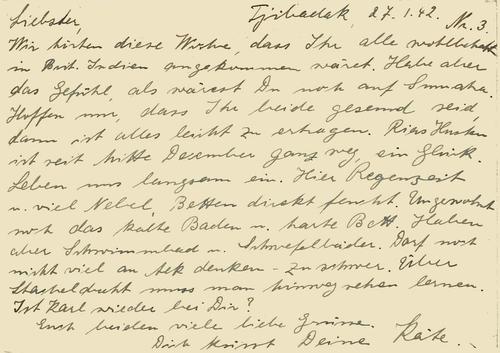 Liebster, Tjibadak, 27.1.42. Nr. 3.
Wir hörten diese Woche, dass Ihr alle wohlbehalten
in Brit. Indien angekommen wäret. Habe aber
das Gefühl, als wärest Du noch auf Sumatra.
Hoffen nur, dass Ihr beide gesund seid,
dann ist alles leicht zu ertragen. Rias Husten
ist seit Mitte Dezember ganz weg, ein Glück.
Leben uns langsam ein. Hier Regenzeit
u. viel Nebel, Betten direkt feucht. Ungewohnt
noch das kalte Baden u. harte Bett. Haben
aber Schwimmbad u. Schwefelbäder. Darf noch
nicht viel an denken - zu schwer. Über
Stacheldraht muss man hinwegsehen lernen.
Ist Karl wieder bei Dir?
Euch beiden viele liebe Grüsse.
Dich küsst Deine Käte.